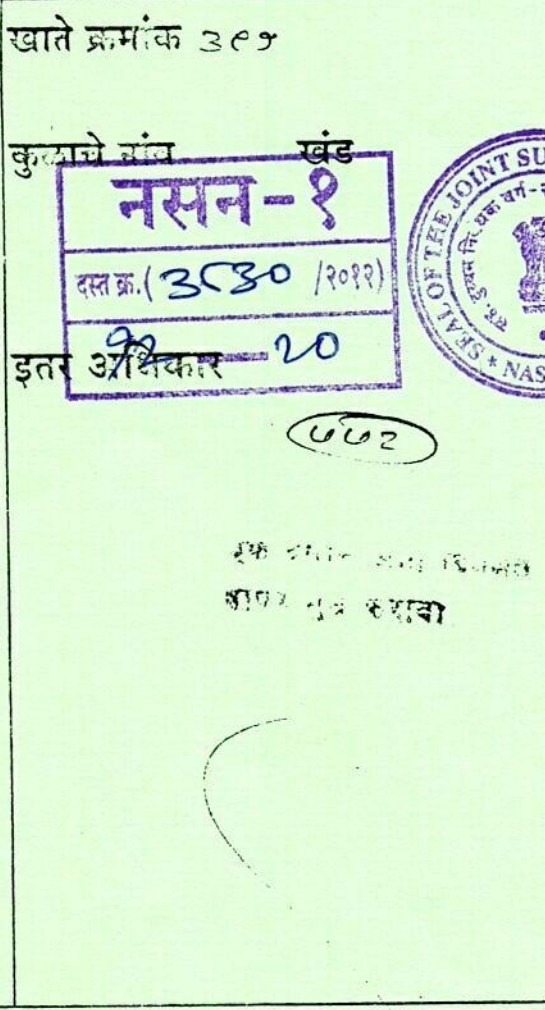 खाते क्रमांक ३९१
कुळाचे नांव खंड
नसन-१
दस्त क्र.(३८३० /२०१२)
१२ — २०
इतर अधिकार
SEAL OF THE JOINT SU
NAS
७७२
वापर सुरु करावा